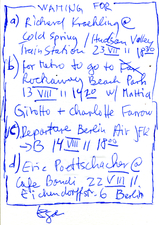 WAITING FOR
a) Richard Kraehling @
Cold Spring / Hudson Valley
Train Station 23 VII 11 18
b) for Patro to go to
Rockaway Beach Park
13 VIII 11 14 20 w/ Mattia
Girotto + Charlotte Farrow
c) Departure Berlin Air
→ B 14 VIII 11 18 20
d) Eric Poettschacher @
Cafe Bondi 22 VIII 11
Eichendorffstr. 6 Berlin